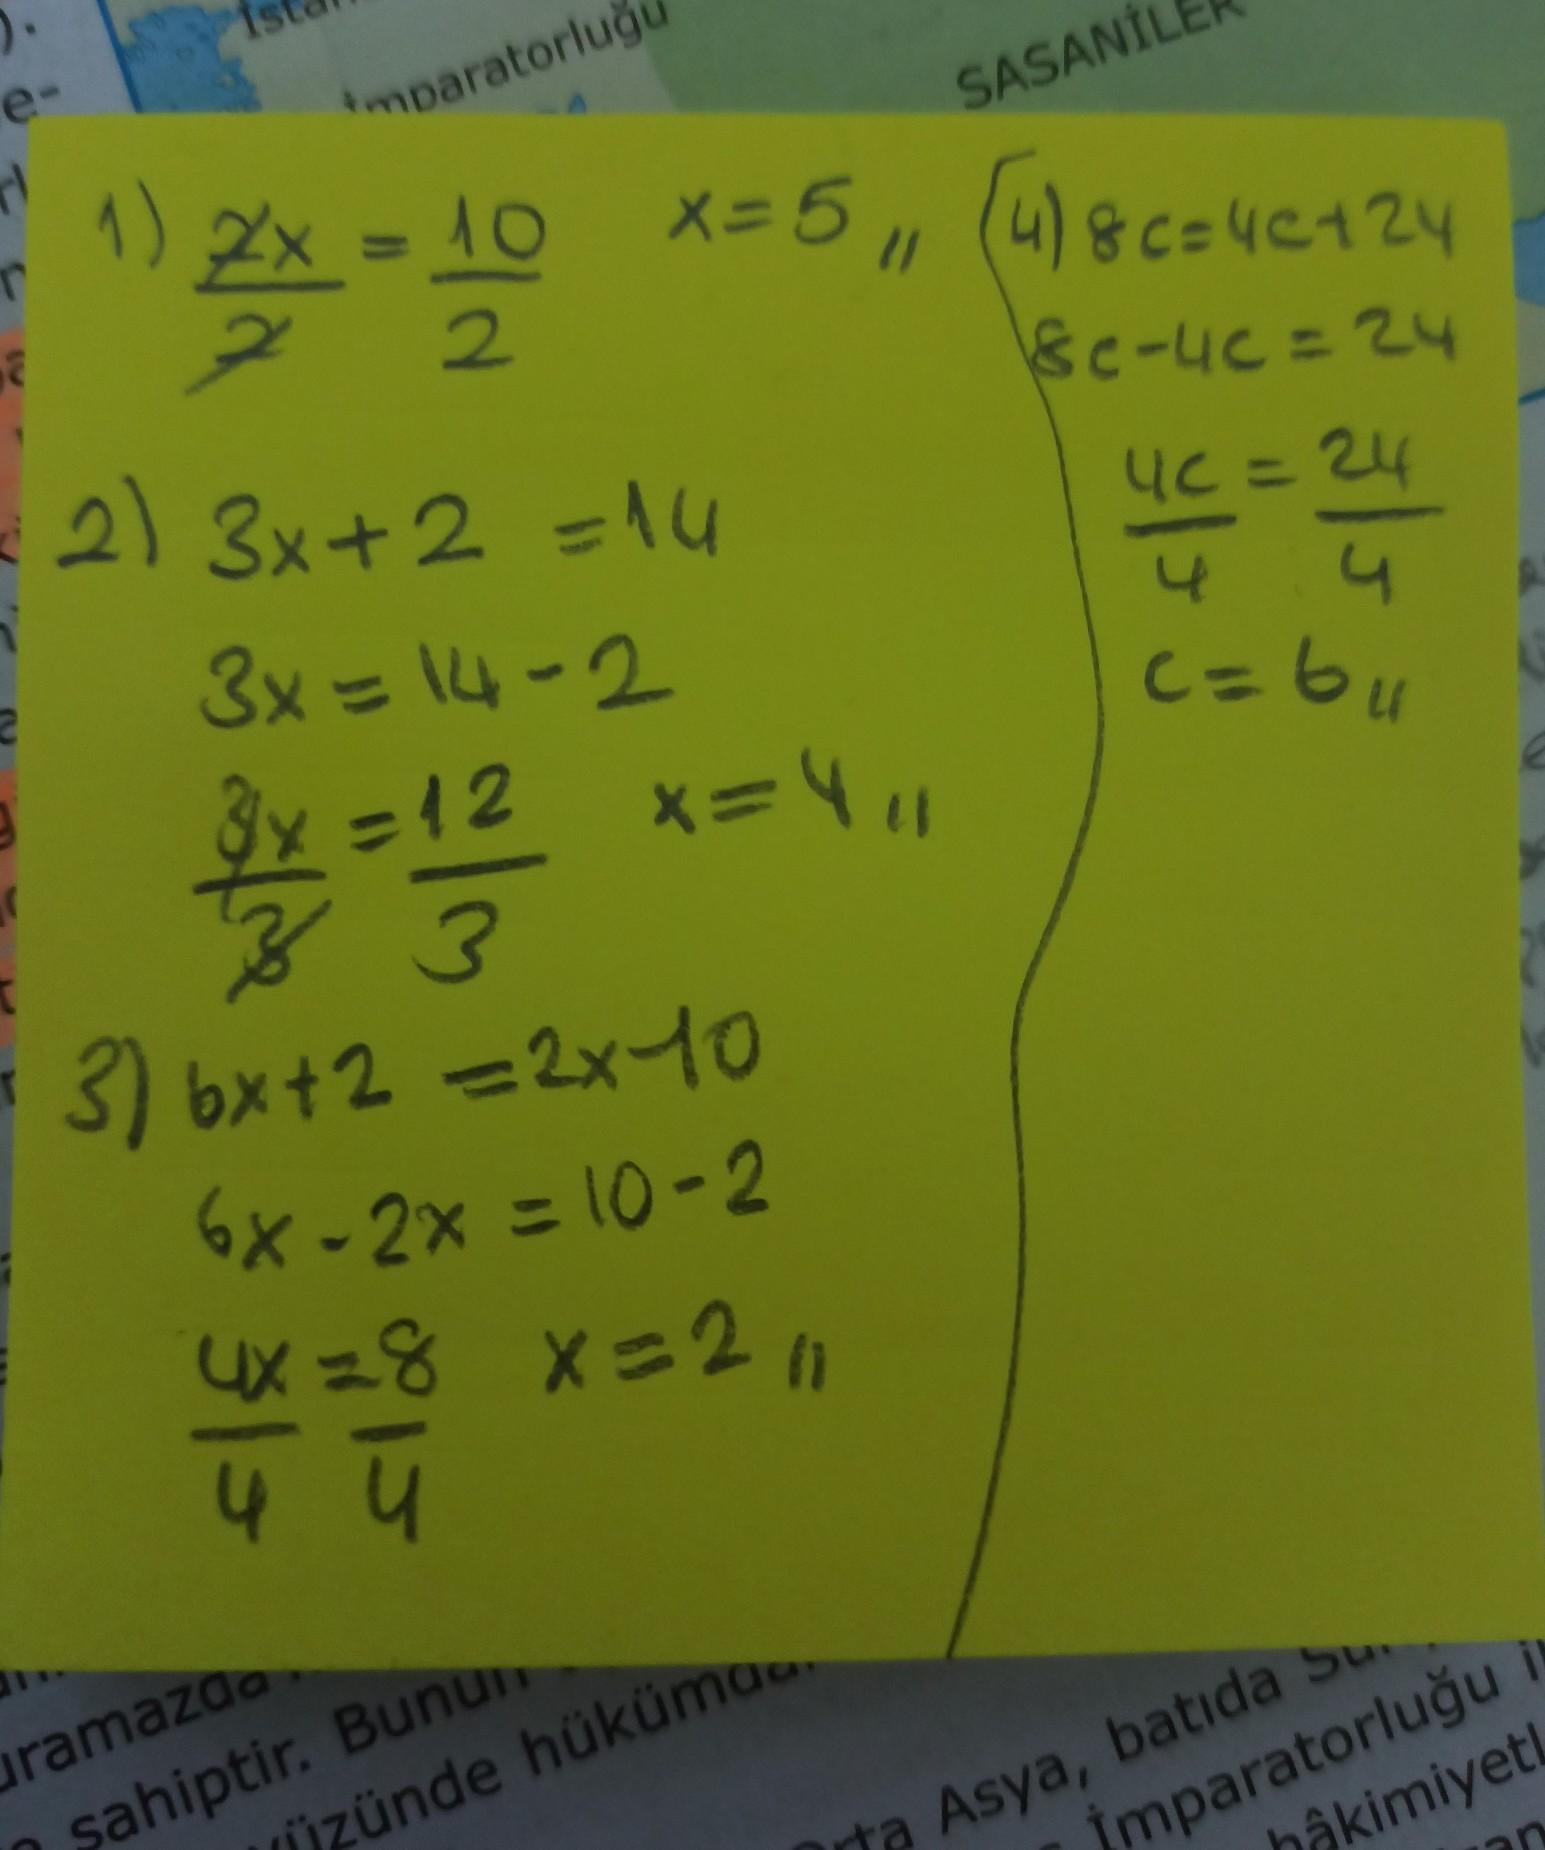 İstan
İmparatorluğu
SASANİLER
).
e-
1) 2x/2 = 10/2 x=5 „
2) 3x+2 =14
3x=14-2
3x/3 =12/3 x=4 „
3) 6x+2 =2x-10
6x-2x =10-2
4x/4 =8/4 x=2 „
4) 8c=4c+24
8c-4c=24
4c/4 = 24/4
c=6 „
uramazda
sahiptir. Bunun
yüzünde hükümda
Orta Asya, batıda Su
İmparatorluğu i
hâkimiyetl